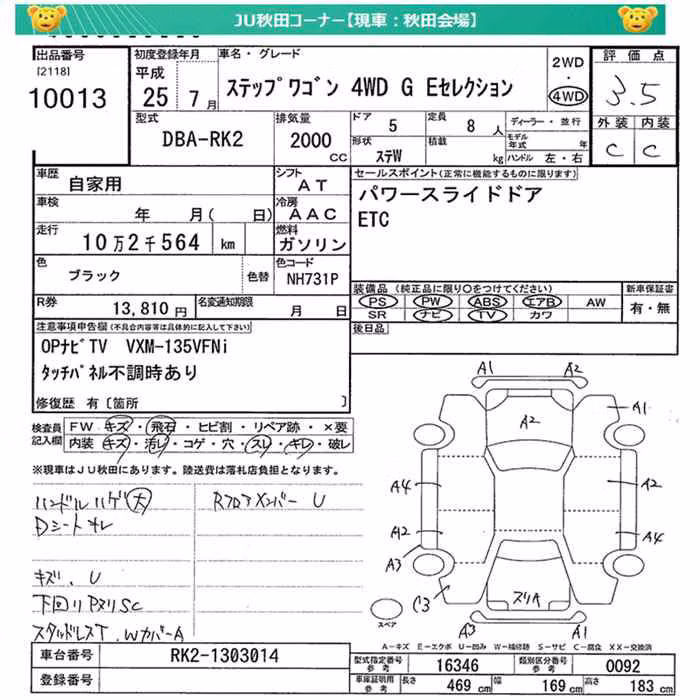 JU秋田コーナー【現車：秋田会場】
出品番号
[2118]
10013
初度登録年月
平成
25 7月
車名・グレード
ステップワゴン 4WD G Eセレクション
2WD
・
4WD
評価点
3.5
外装 内装
C C
型式
DBA-RK2
排気量
2000
CC
ドア 5
定員 8 人
形状
ステW
積載
kg
ディーラー・並行
モデル年式 年
ハンドル 左・右
車歴
自家用
シフト
AT
車検
年 月( 日)
冷房
AAC
走行
10万2千564 km
燃料
ガソリン
色
ブラック
色替
色コード
NH731P
R券
13,810円
名変通知期限
月 日
セールスポイント(正常に機能するものに限ります)
パワースライドドア
ETC
装備品 (純正品に限り○をつけてください)
PS PW ABS エアB AW
SR ナビ TV カワ
新車保証書
有・無
後日品
注意事項申告欄(不具合内容等は具体的に記入して下さい)
OPナビTV VXM-135VFNi
タッチパネル不調時あり
修復歴 有〔箇所 〕
検査員
記入欄
FW キズ・飛石・ヒビ割・リペア跡・×要
内装 キズ・汚レ・コゲ・穴・スレ・キレ・破レ
※現車はJU秋田にあります。陸送費は落札店負担となります。
ハンドルハゲ大
Dシートスレ
RフロアメンバーU
キズ、U
下回りPヌリSC
スタッドレスT、WカバーA
A1
A1
A2
A1
A4
A2
A12
A4
A3
C3
ヌリA
A3
A1
スペア
A－キズ E－エクボ U－凹み W－補修跡 S－サビ C－腐食 XX－交換済
車台番号
RK2-1303014
登録番号
型式指定番号
参考
16346
類別区分番号
参考
0092
車庫証明用
参考
長さ 469 cm
幅 169 cm
高さ 183 cm